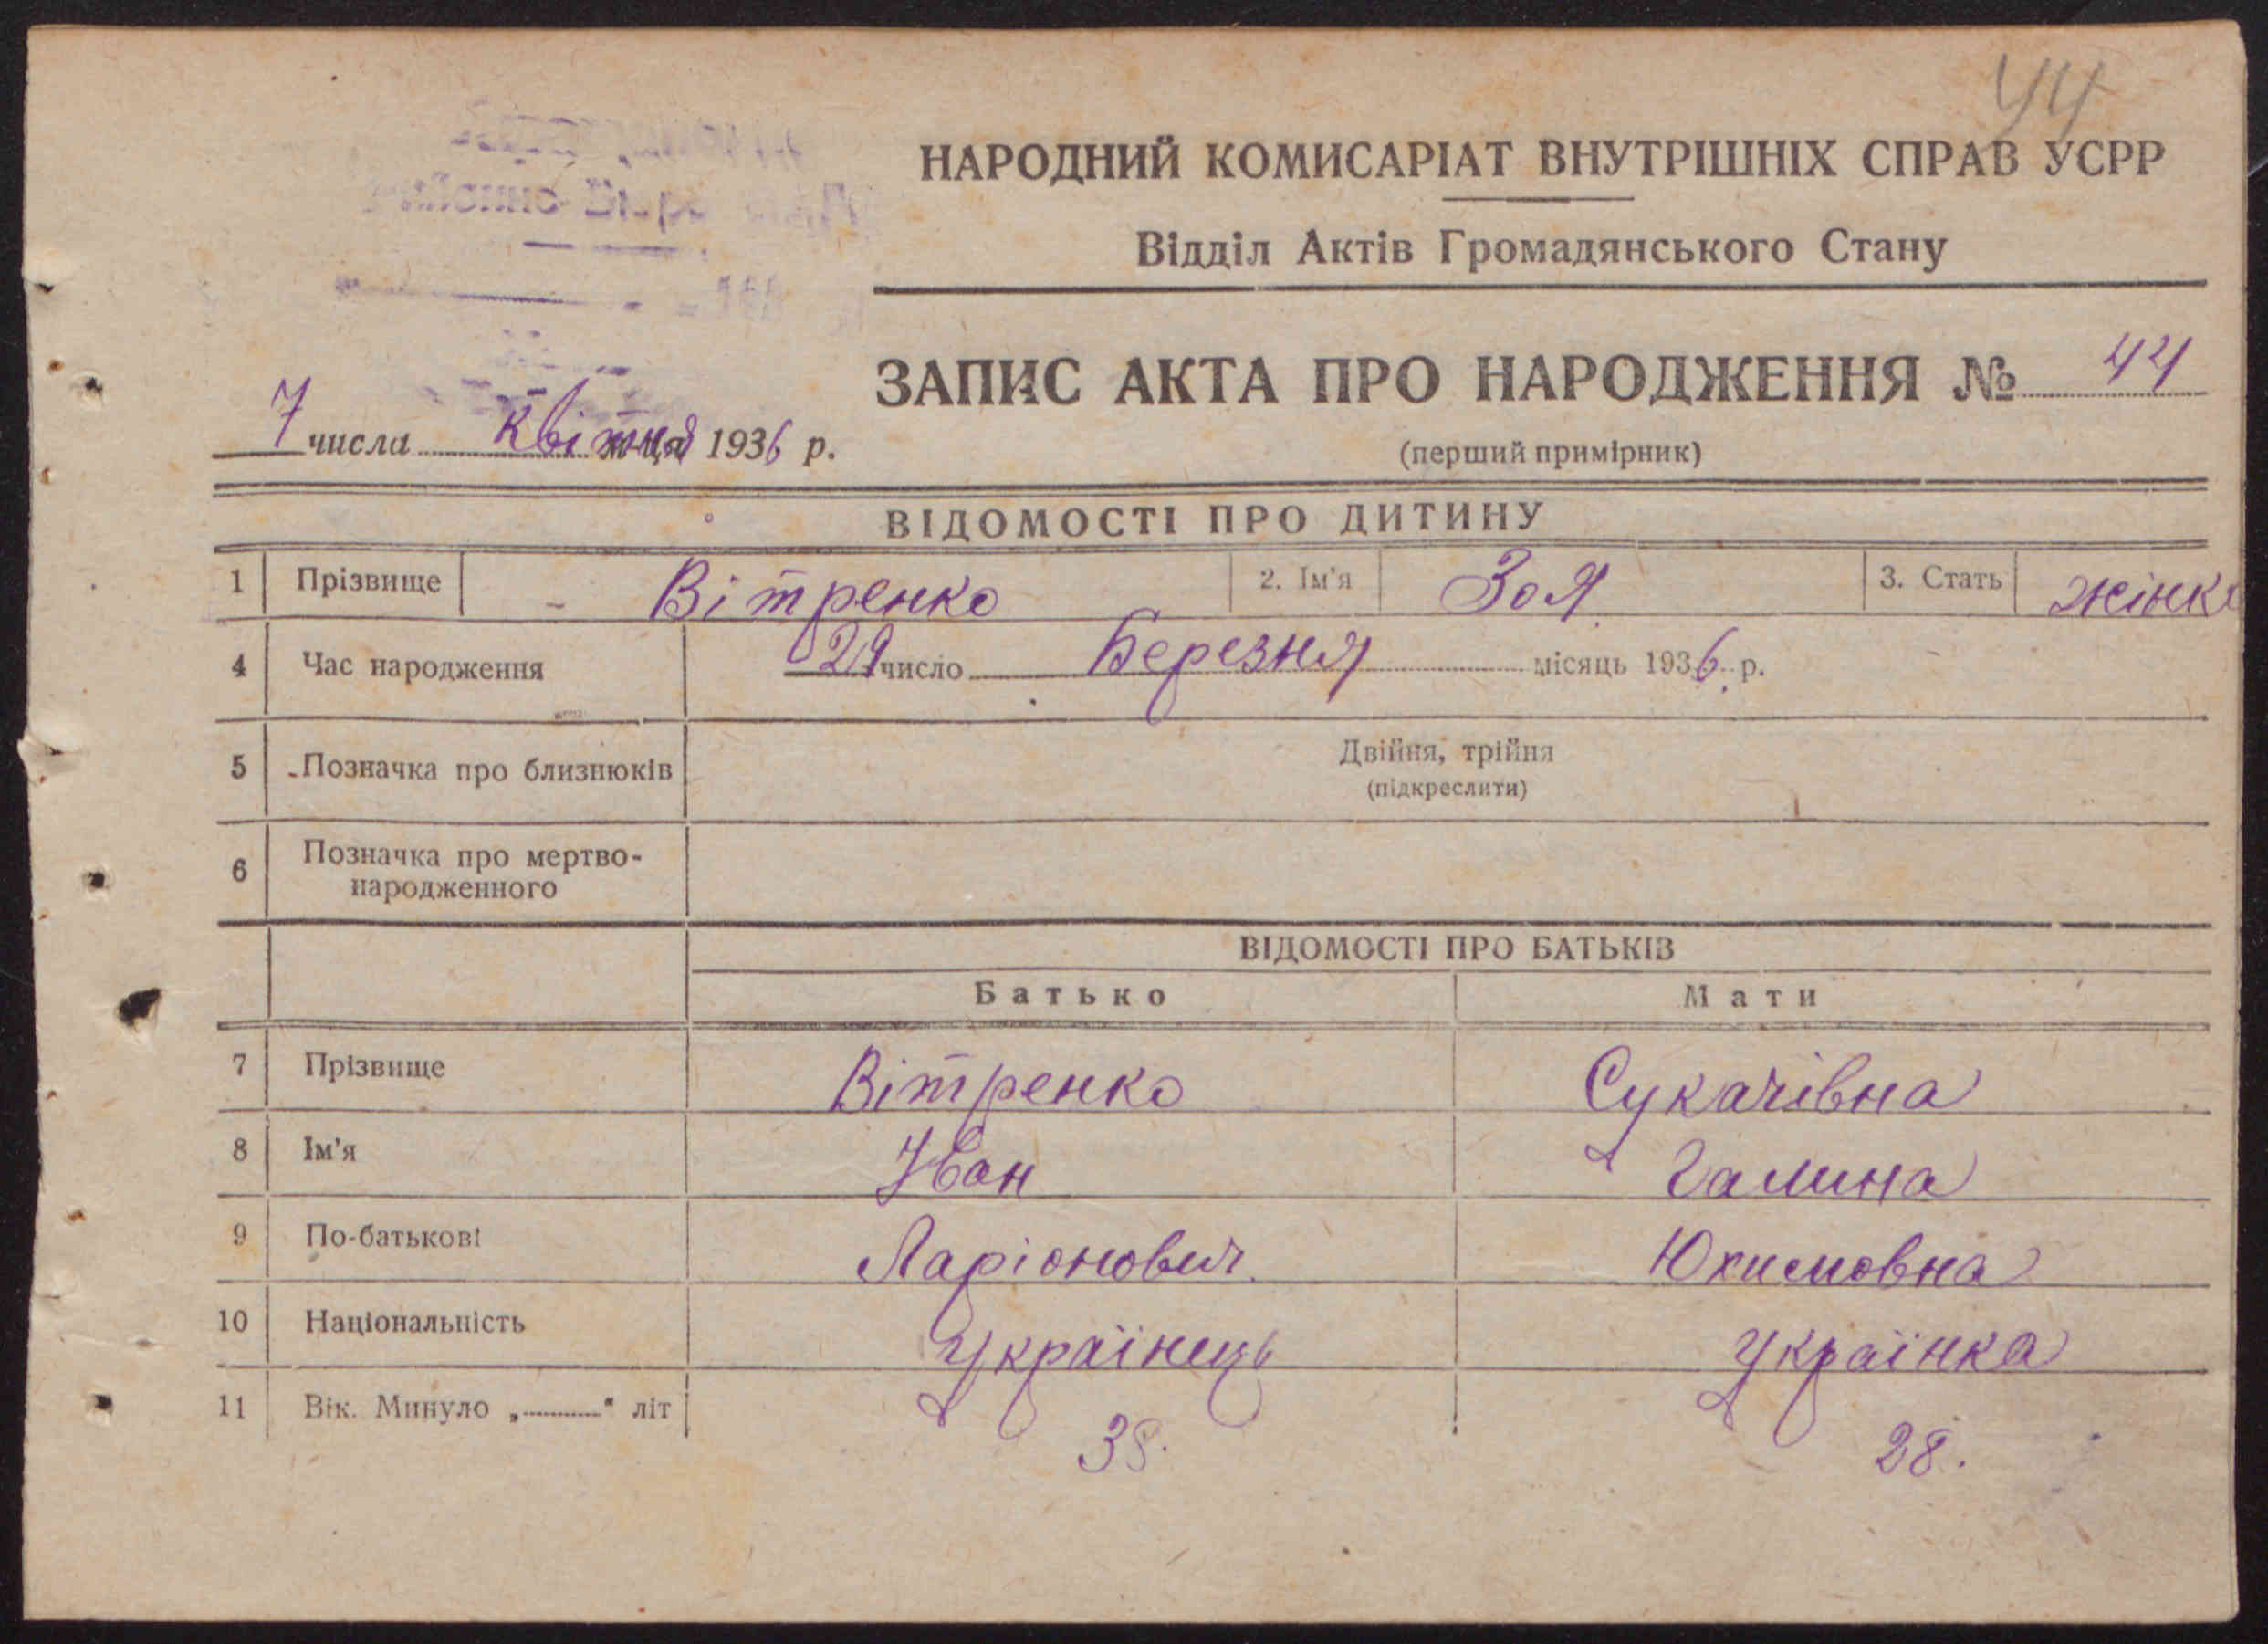 44
НАРОДНИЙ КОМИСАРІАТ ВНУТРІШНІХ СПРАВ УСРР
Відділ Актів Громадянського Стану
ЗАПИС АКТА ПРО НАРОДЖЕННЯ № 44
7 числа квітня м-ця 1936 р.
(перший примірник)
ВІДОМОСТІ ПРО ДИТИНУ
1 Прізвище Вітренко 2. Ім'я Зоя 3. Стать жінк
4 Час народження 29 число Березня місяць 1936 р.
5 Позначка про близнюків Двійня, трійня
(підкреслити)
6 Позначка про мертво-
народженного
ВІДОМОСТІ ПРО БАТЬКІВ
Батько Мати
7 Прізвище Вітренко Сукачівна
8 Ім'я Іван Галина
9 По-батькові Ларіонович Юхимовна
10 Національність Українець Українка
11 Вік. Минуло „ “ літ 38. 28.